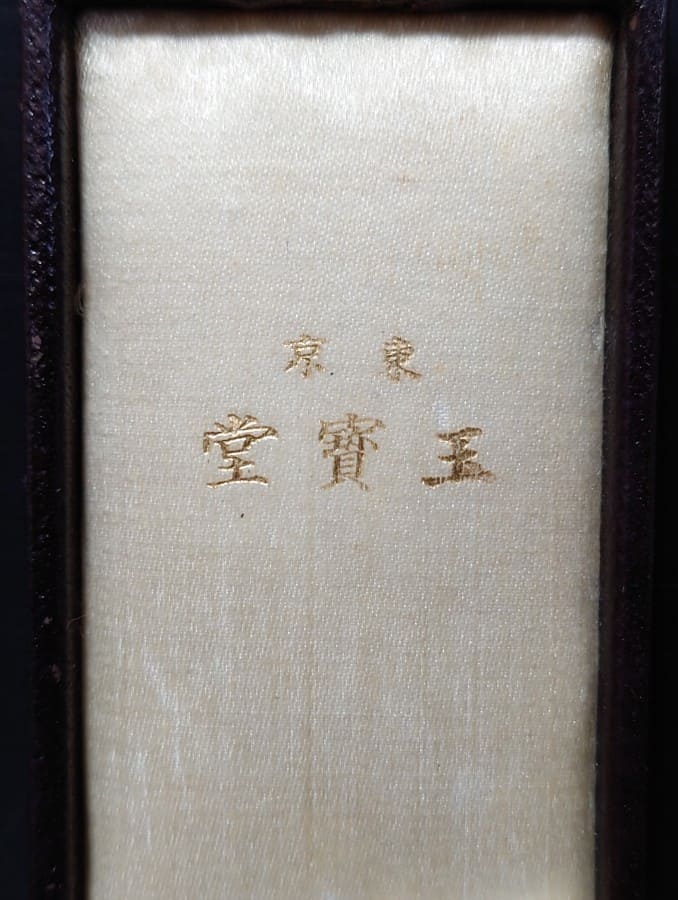 東京
玉寶堂